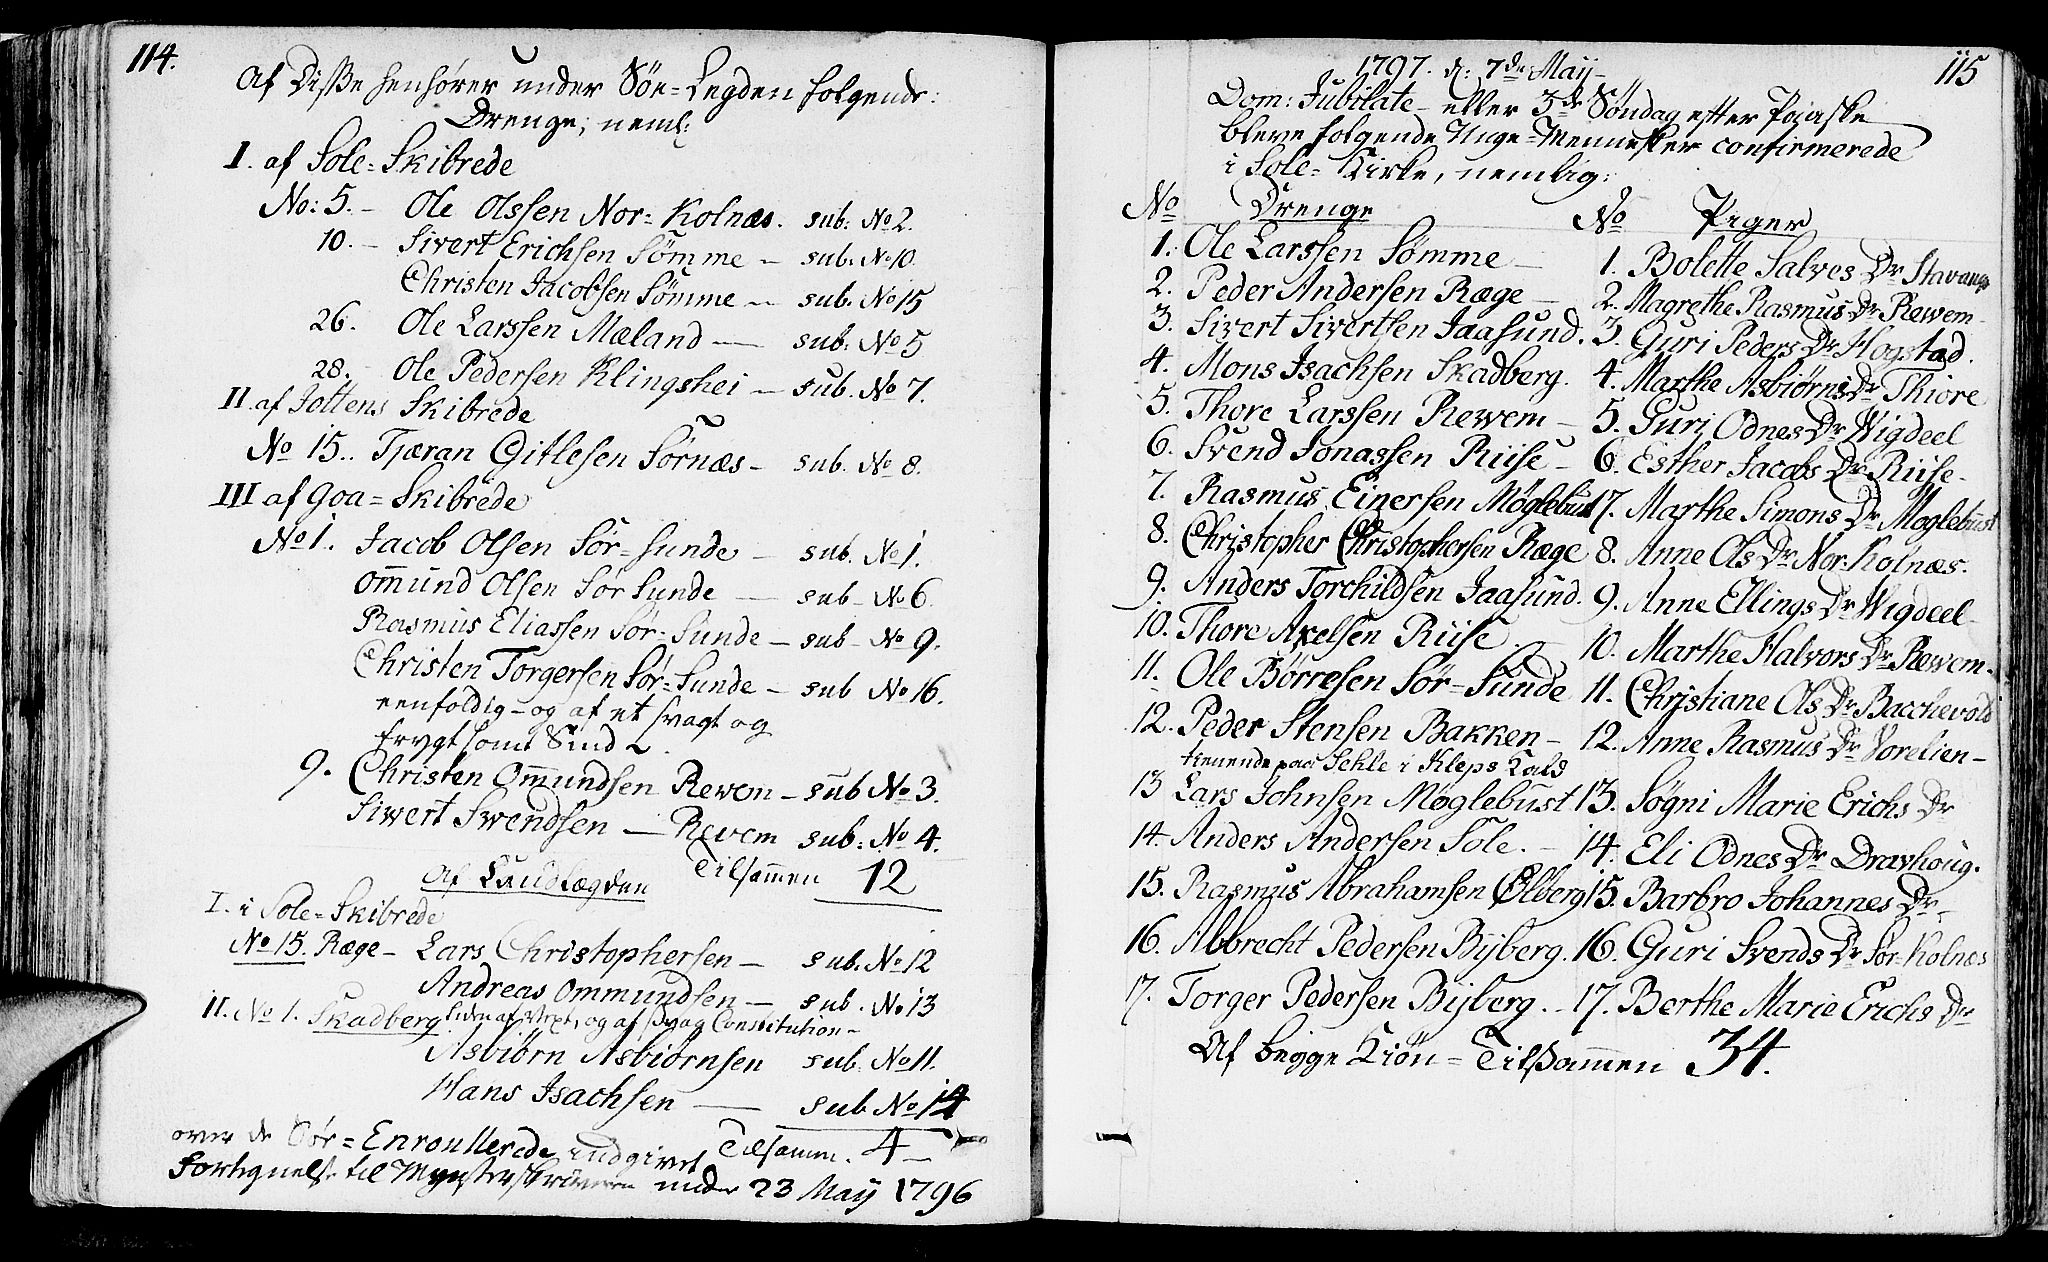 114.
Af Disse henhører under Söe-Legden følgende
Drenge, neml:
I. af Sole-Skibrede
No: 5. – Ole Olssen Nor-Kolnæs. sub: No 2.
10. – Sivert Erichsen Sömme – sub. No 10.
Christen Jacobsen Sömme – sub. No 15
26. Ole Larssen Mæland — sub: No 5
28. Ole Pedersen Klingshei – sub. No 7.
II. af Jottens Skibrede
No 15.. Tjæran Gitlesen Sörnæs – sub. No 8.
III af Goa-Skibrede
No 1. Jacob Olsen Sör-Sunde – sub. No 1.
Om̄und Olsen Sör Sunde — sub – No 6.
Rasmus Eliassen Sör-Sunde – sub – No 9.
Christen Torgersen Sör-Sunde – sub No 16.
eenfoldig – og af et svagt og
frygtsomt Sind
9. Christen Om̄undsen Rewem – sub No 3.
Sivert Swendsen — Revem sub: No 4.
Af Landlægden Tilsam̄en 12
I. i Sole-Skibrede
No 15. Ræge – Lars Christophersen – sub. No 12
Andreas Ommundsen – sub. No 13
II. No 1. Skadberg liden af Vext, og af svag Constitution –
Asbiörn Asbiörnsen sub. No 11.
Hans Isachsen — sub. No 14
Tilsamm. 4 –
over de Söe-Enroullerede indgivet
Fortegnelse til Mynsterskriveren under 23 May 1796
115
1797. d: 7de Maij –
Dom: Jubilate – eller 3de Söndag efter Paaske
bleve følgende Unge-Mennesker confirmerede
i Sole-Kirke, nemlig:
No Drenge
1. Ole Larssen Sömme –
2. Peder Andersen Ræge –
3. Sivert Sivertsen Jaasund.
4. Mons Isachsen Skadberg.
5. Thore Larssen Rewem –
6. Svend Jonassen Riise –
7. Rasmus Einersen Möglebust
8. Christopher Christophersen Ræge
9. Anders Torchildsen Jaasund.
10. Thore Axelsen Riise
11. Ole Börresen Sör-Sunde
12. Peder Stensen Bakken –
tienende paa Sehle i Kleps Kald
13 Lars Johnsen Möglebust
14. Anders Andersen Sole. –
15. Rasmus Abrahamsen Ölberg
16. Albrecht Pedersen Bijberg.
17. Torger Pedersen Bijberg. –
No Piger
1. Bolette Salves Dr Stavang
2. Magrethe Rasmus Dr Rewem –
3. Guri Peders Dr Hogstad.
4. Marthe Asbiörns Dr Thiore
5. Guri Odnes Dr Wigdeel
6. Esther Jacobs Dr Riise –
7. Marthe Simons Dr Moglebust
8. Anne Ols Dr Nor-Kolnæs.
9. Anne Ellings Dr Wigdeel –
10. Marthe Halvors Dr Rewem –
11. Christiane Ols Dr Bacchevold
12. Anne Rasmus Dr Vorelien –
13. Sögni Marie Erichs Dr
14. Eli Odnes Dr Dravhoug.
15. Barbro Johannes Dr –
16. Guri Svends Dr Sör-Kolnæs
17. Berthe Marie Erichs Dr
Af begge Kiön – Tilsam̄en 34.